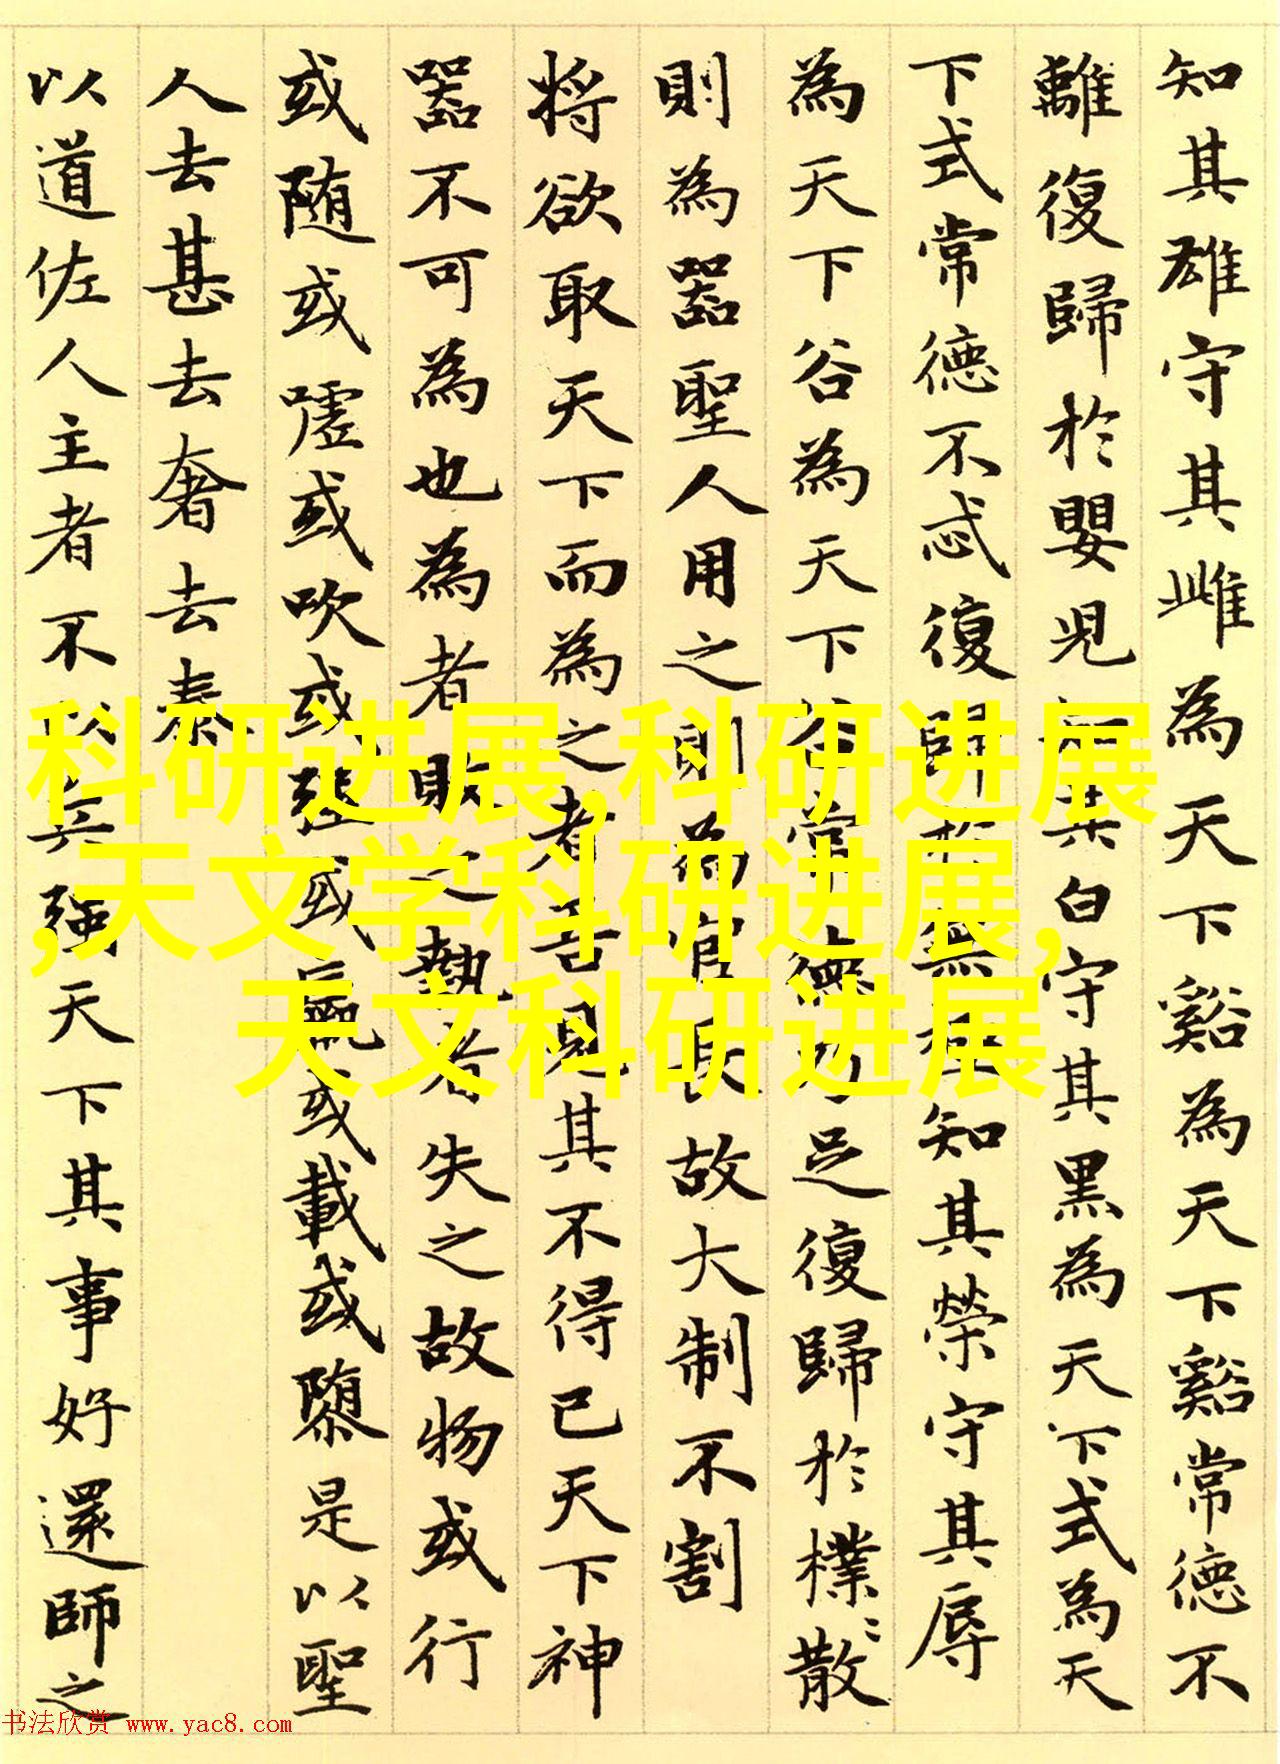 知其雄守其雌為天下谿為天下谿常德不
離復歸於嬰兒知其白守其黑為天下式為天
下式常德不忒復歸於無極知其榮守其辱
為天下谷為天下谷常德乃足復歸於樸〻散
則為器聖人用之則為官長故大制不割
将欲取天下而為之者吾見其不得已天下神
器不可為也為者敗之執者失之故物或行
或随或嘘或吹或强或羸或載或隳是以聖
人去甚去奢去泰
以道佐人主者不以兵强天下其事好還師之
科研进展,科研进展
,天文学科研进展,
天文科研进展
书法欣赏 www.yac8.com